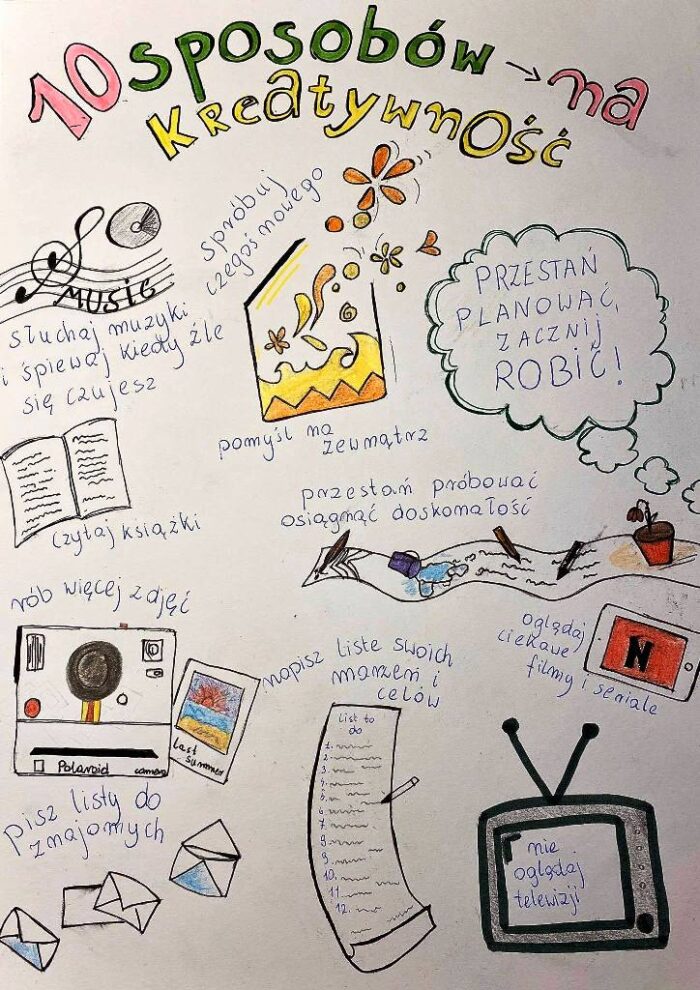 10 sposobów → na
kreatywność
spróbuj
czegoś nowego
MUSIC
słuchaj muzyki
i śpiewaj kiedy źle
się czujesz
PRZESTAŃ
PLANOWAĆ,
ZACZNIJ
ROBIĆ!
pomyśl na
zewnątrz
czytaj książki
przestań próbować
osiągnąć doskonałość
rób więcej zdjęć
oglądaj
ciekawe
filmy i seriale
N
napisz liste swoich
marzeń i
celów
Polaroid camera
last
summer
List to
do
1.
2.
3.
4.
5.
6.
7.
8.
9.
10.
11.
12.
pisz listy do
znajomych
nie
oglądaj
telewizji